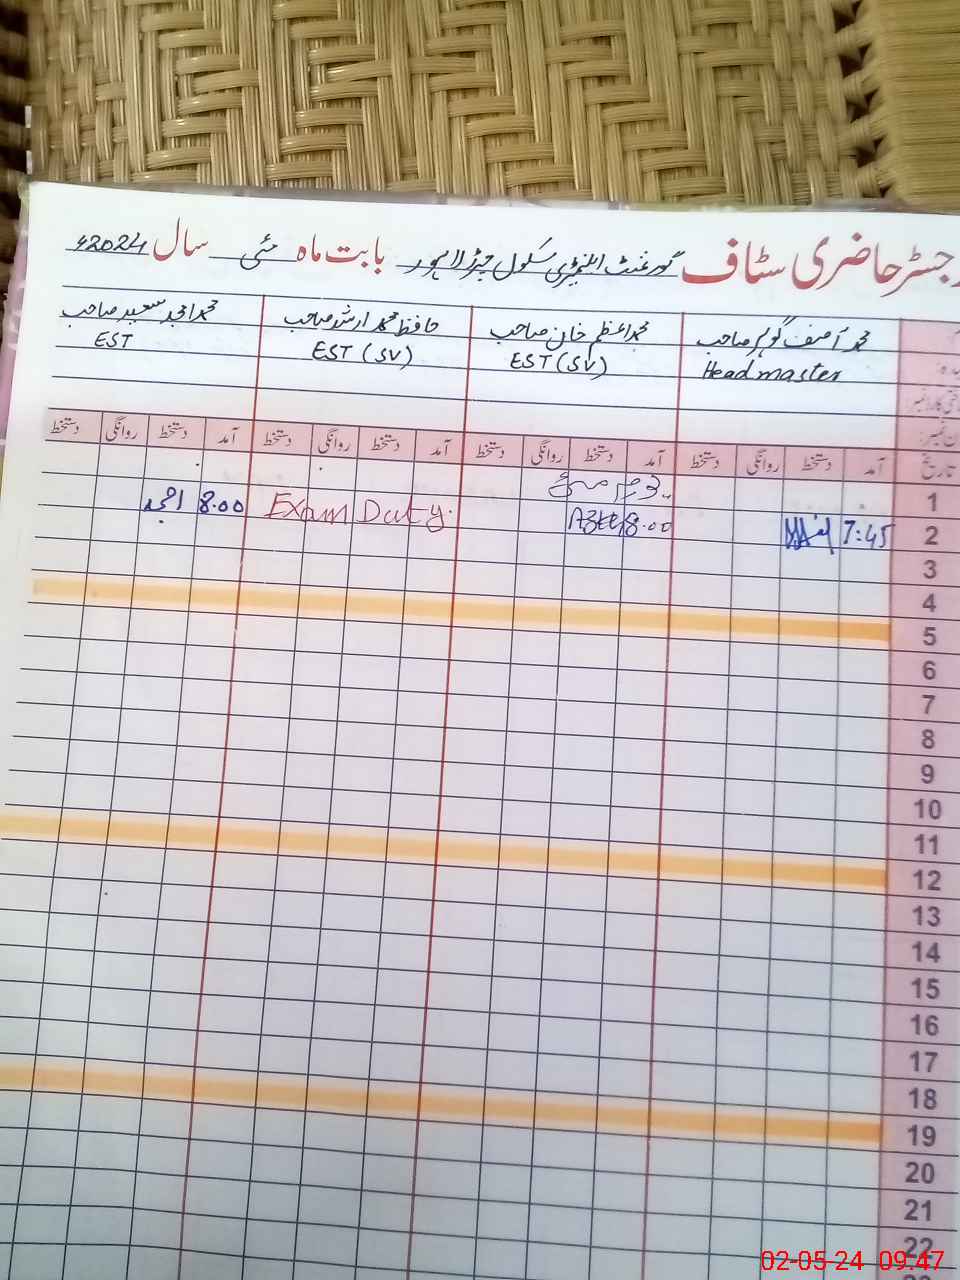 رجسٹر حاضری سٹاف گورنمنٹ ایلیمنٹری سکول چرڑ لاہور بابت ماہ مئی سال 2024ء
محمد آصف گوہر صاحب محمد اعظم خان صاحب حافظ محمد ارشد صاحب محمد امجد سعید صاحب
Headmaster EST (SV) EST (SV) EST
تاریخ آمد دستخط روانگی دستخط آمد دستخط روانگی دستخط آمد دستخط روانگی دستخط آمد دستخط روانگی دستخط
1 یوم مئی
2 7:45 8:00 Exam Duty 8:00 امجد
3
4
5
6
7
8
9
10
11
12
13
14
15
16
17
18
19
20
21
22
02-05-24 09:47